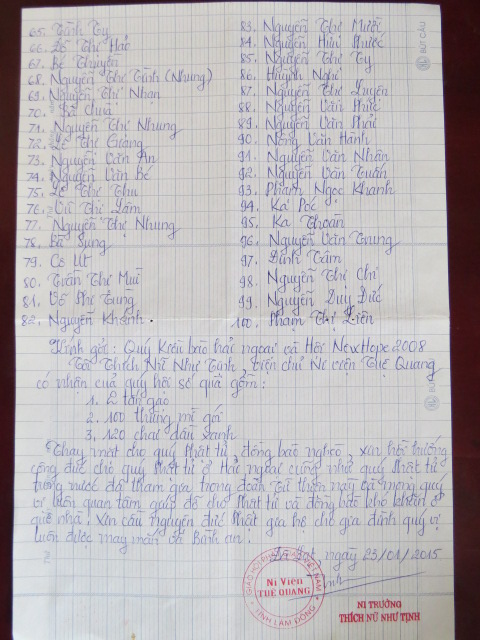 65. Tịnh Ty
66. Lê Thị Hác
67. Bé Thuyền
68. Nguyễn Thị Tình (Nhung)
69. Nguyễn Thị Nhạn
70. Bà Chuối
71. Nguyễn Thị Nhung
72. Lê Thị Giảng
73. Nguyễn Văn An
74. Nguyễn Văn Bé
75. Lê Thị Thu
76. Vũ Thị Lắm
77. Nguyễn Thị Nhung
78. Bà Sung
79. Cô Út
80. Trần Thị Mua
81. Võ Phi Tùng
82. Nguyễn Khánh.
83. Nguyễn Thị Mười
84. Nguyễn Hữu Phước
85. Nguyễn Thị Ty
86. Huỳnh Nghi
87. Nguyễn Thị Luyến
88. Nguyễn Văn Phúc
89. Nguyễn Văn Phải
90. Nông Văn Hành
91. Nguyễn Văn Nhân
92. Nguyễn Văn Tuấn
93. Phạm Ngọc Khánh
94. Ka Póc
95. Ka Thoàn
96. Nguyễn Văn Trung
97. Đinh Tám
98. Nguyễn Thị Chi
99. Nguyễn Duy Đức
100. Phạm Thị Liên
Kính gởi: Quý Kiều bào hải ngoại và Hội NewHope 2008
Tôi Thích Nữ Như Tịnh, Viện chủ Ni viện Tuệ Quang
có nhận của quý hội số quà gồm:
1. 2 tấn gạo
2. 100 thùng mì gói
3, 120 chai dầu xanh
Thay mặt cho quý Phật tử, đồng bào nghèo, xin hồi hướng
công đức cho quý Phật tử ở Hải ngoại cũng như quý Phật tử
trong nước đã tham gia trong đoàn từ thiện này và mong quý
vị luôn quan tâm giúp đỡ cho Phật tử và đồng bào khó khăn ở
quê nhà. Xin cầu nguyện đức Phật gia hộ cho gia đình quý vị
luôn được may mắn và Bình an.
Đà Lạt ngày 23/01/2015.
Ni Viện
TUỆ QUANG
TỈNH LÂM ĐỒNG
NI TRƯỞNG
THÍCH NỮ NHƯ TỊNH